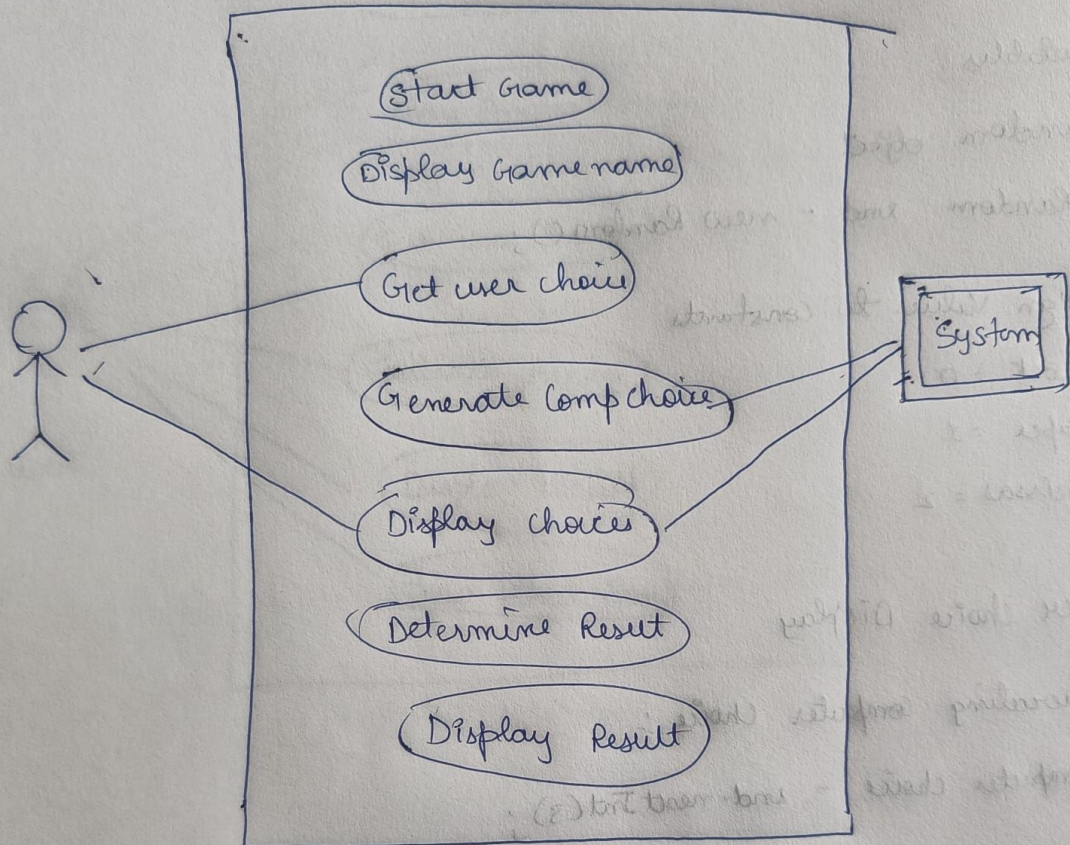 Start Game
Display Gamename
Get user choice
Generate Comp choice
System
Display choices
Determine Result
Display Result